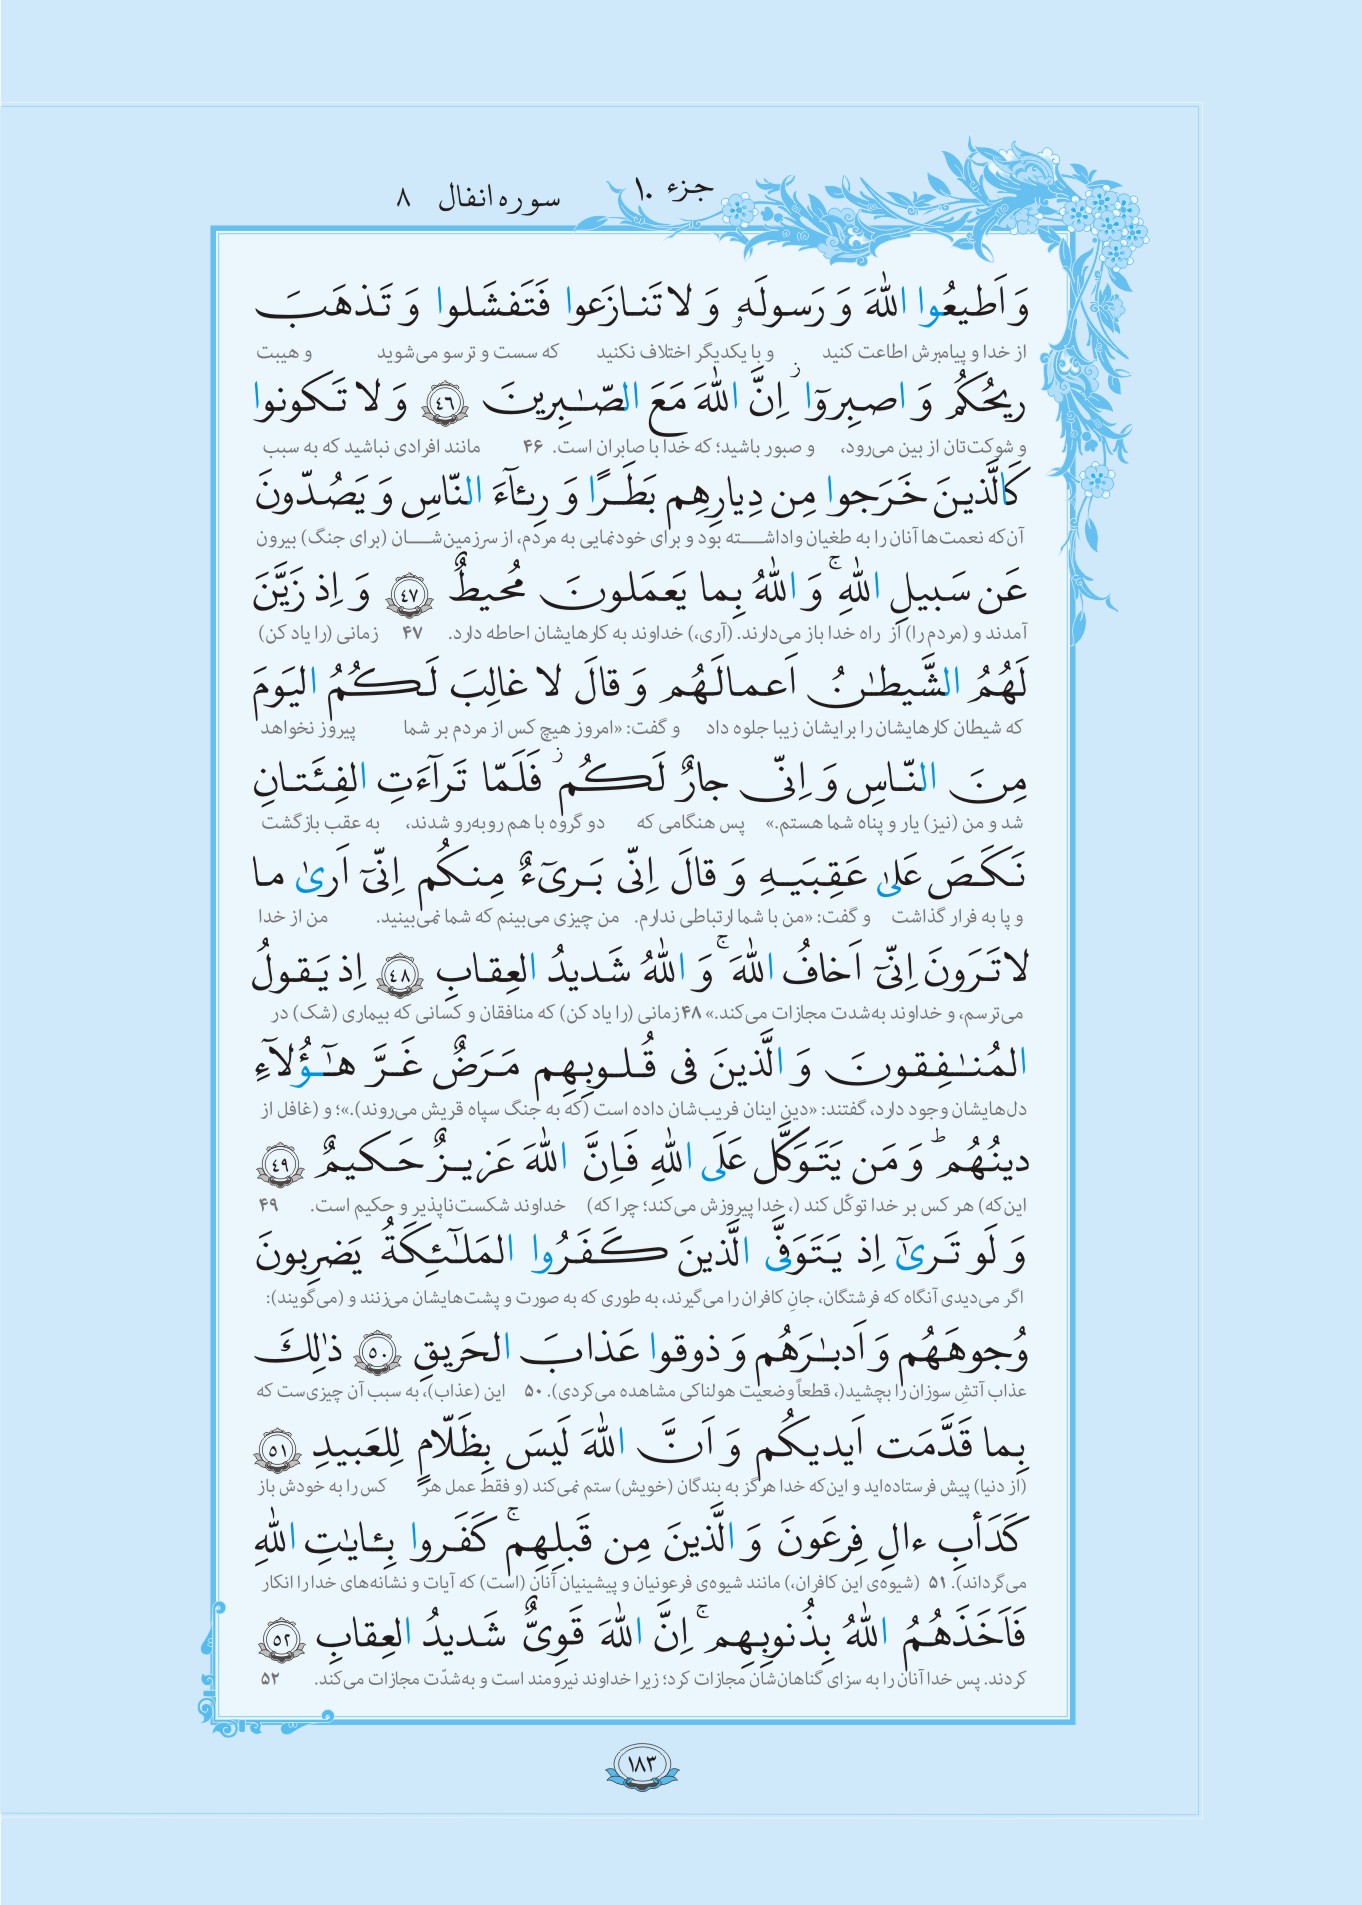 جزء ۱۰
سوره انفال ۸
وَ اَطیعُوا اللّٰهَ وَ رَسولَهٗ وَ لا تَنازَعوا فَتَفشَلوا وَ تَذهَبَ
از خدا و پیامبرش اطاعت کنید و با یکدیگر اختلاف نکنید که سست و ترسو می‌شوید و هیبت
ریحُکُم وَ اصبِروٓا ۖز اِنَّ اللّٰهَ مَعَ الصّٰبِرینَ ﴿٤٦﴾ وَ لا تَکونوا
و شوکت‌تان از بین می‌رود، و صبور باشید؛ که خدا با صابران است. ۴۶ مانند افرادی نباشید که به سبب
کَالَّذینَ خَرَجوا مِن دِیارِهِم بَطَرًا وَ رِئآءَ النّاسِ وَ یَصُدّونَ
آن‌که نعمت‌ها آنان را به طغیان واداشته بود و برای خودنمایی به مردم، از سرزمین‌شان (برای جنگ) بیرون
عَن سَبیلِ اللّٰهِ ۚ وَ اللّٰهُ بِما یَعمَلونَ مُحیطٌ ﴿٤٧﴾ وَ اِذ زَیَّنَ
آمدند و (مردم را) از راه خدا باز می‌دارند. (آری،) خداوند به کارهایشان احاطه دارد. ۴۷ زمانی (را یاد کن)
لَهُمُ الشَّیطٰنُ اَعمالَهُم وَ قالَ لا غالِبَ لَکُمُ الیَومَ
که شیطان کارهایشان را برایشان زیبا جلوه داد و گفت: «امروز هیچ کس از مردم بر شما پیروز نخواهد
مِنَ النّاسِ وَ اِنّی جارٌ لَکُم ز فَلَمّا تَرآءَتِ الفِئَتانِ
شد و من (نیز) یار و پناه شما هستم.» پس هنگامی که دو گروه با هم روبه‌رو شدند، به عقب بازگشت
نَکَصَ عَلیٰ عَقِبَیهِ وَ قالَ اِنّی بَریٓءٌ مِنکُم اِنّیٓ اَریٰ ما
و پا به فرار گذاشت و گفت: «من با شما ارتباطی ندارم. من چیزی می‌بینم که شما نمی‌بینید. من از خدا
لا تَرَونَ اِنّیٓ اَخافُ اللّٰهَ ۚ وَ اللّٰهُ شَدیدُ العِقابِ ﴿٤٨﴾ اِذ یَقولُ
می‌ترسم، و خداوند به‌شدت مجازات می‌کند.» ۴۸ زمانی (را یاد کن) که منافقان و کسانی که بیماری (شک) در
المُنٰفِقونَ وَ الَّذینَ فی قُلوبِهِم مَرَضٌ غَرَّ هٰٓؤُلآءِ
دل‌هایشان وجود دارد، گفتند: «دینِ اینان فریب‌شان داده است (که به جنگ سپاه قریش می‌روند).»؛ و (غافل از
دینُهُم ؕ وَ مَن یَتَوَکَّل عَلَی اللّٰهِ فَاِنَّ اللّٰهَ عَزیزٌ حَکیمٌ ﴿٤٩﴾
این‌که) هر کس بر خدا توکّل کند (، خدا پیروزش می‌کند؛ چرا که) خداوند شکست‌ناپذیر و حکیم است. ۴۹
وَ لَو تَریٰٓ اِذ یَتَوَفَّی الَّذینَ کَفَرُوا المَلٰٓئِکَةُ یَضرِبونَ
اگر می‌دیدی آنگاه که فرشتگان، جانِ کافران را می‌گیرند، به طوری که به صورت و پشت‌هایشان می‌زنند و (می‌گویند):
وُجوهَهُم وَ اَدبٰرَهُم وَ ذوقوا عَذابَ الحَریقِ ﴿٥٠﴾ ذٰلِکَ
عذاب آتشِ سوزان را بچشید(، قطعاً وضعیت هولناکی مشاهده می‌کردی). ۵۰ این (عذاب)، به سبب آن چیزی‌ست که
بِما قَدَّمَت اَیدیکُم وَ اَنَّ اللّٰهَ لَیسَ بِظَلّامٍ لِلعَبیدِ ﴿٥١﴾
(از دنیا) پیش فرستاده‌اید و این‌که خدا هرگز به بندگان (خویش) ستم نمی‌کند (و فقط عمل هر کس را به خودش باز
کَدَأبِ ءالِ فِرعَونَ وَ الَّذینَ مِن قَبلِهِم ۚ کَفَروا بِـٔایٰتِ اللّٰهِ
می‌گرداند). ۵۱ (شیوه‌ی این کافران،) مانند شیوه‌ی فرعونیان و پیشینیان آنان (است) که آیات و نشانه‌های خدا را انکار
فَاَخَذَهُمُ اللّٰهُ بِذُنوبِهِم ۚ اِنَّ اللّٰهَ قَویٌّ شَدیدُ العِقابِ ﴿٥٢﴾
کردند. پس خدا آنان را به سزای گناهان‌شان مجازات کرد؛ زیرا خداوند نیرومند است و به‌شدّت مجازات می‌کند. ۵۲
۱۸۳